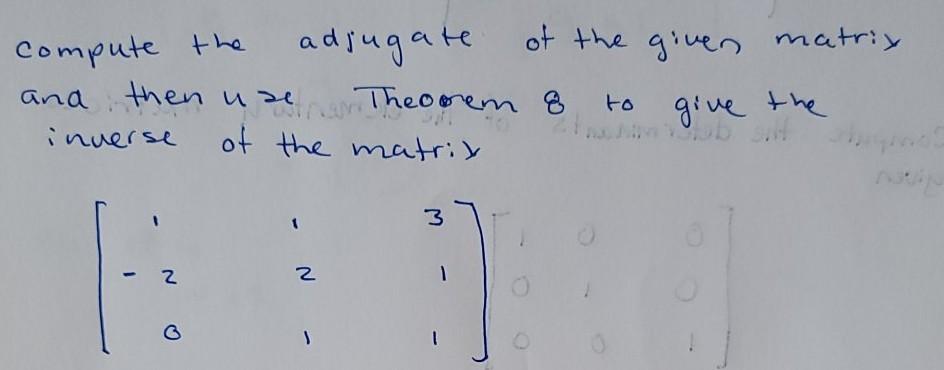 compute the adjugate of the given matrix
and then use Theorem 8 to give the
inverse of the matrix
1 1 3 1 0 0
-2 2 1 0 1 0
0 1 1 0 0 1